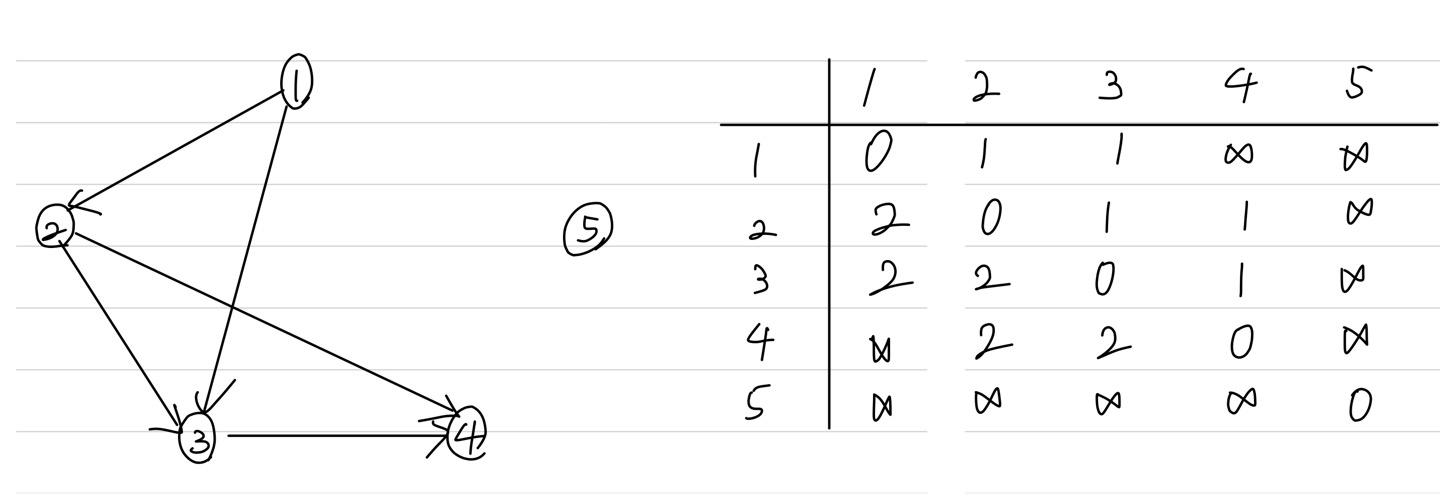 1
2
5
3
4
1 2 3 4 5
1 0 1 1 ∞ ∞
2 2 0 1 1 ∞
3 2 2 0 1 ∞
4 ∞ 2 2 0 ∞
5 ∞ ∞ ∞ ∞ 0